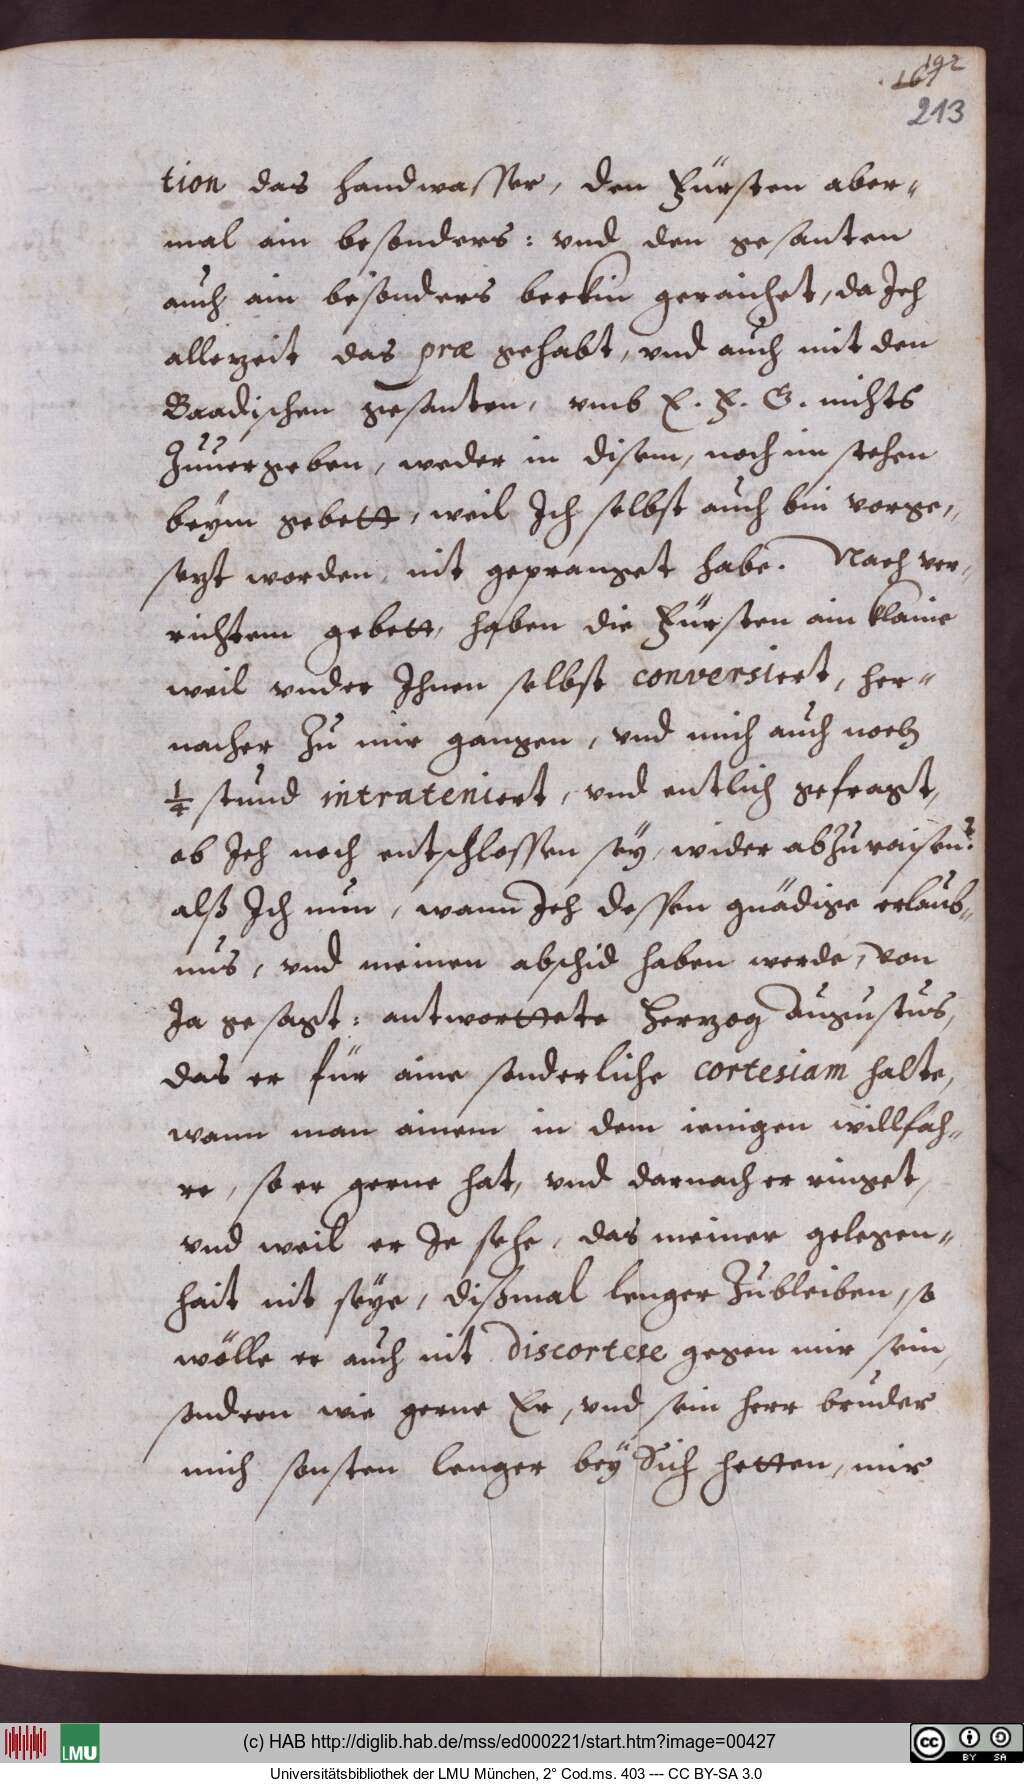 192
167
213
tion das handwasser, den Fürsten aber-
mal ain besonders: vnd den gesanten
auch ain besonders beckin geraichet, da Ich
allezeit das præ gehabt, vnd auch mit den
Baadischen gesanten, vmb E. F. G. nichts
Zuuergeben, weder in disem, noch im stehen
beym gebett, weil Ich selbst auch bin vorge-
sezt worden, nit gepranget habe. Nach ver-
richtem gebett, haben die Fürsten ain klaine
weil vnder Ihnen selbst conversiert, her-
nacher Zu mir gangen, vnd mich auch noch
1/4 stund intrateniert, vnd entlich gefragt,
ob Ich noch entschlossen sey, wider abZuraisen?
alß Ich nun, wann Ich dessen gnädige erlaub-
nus, vnd meinen abschid haben werde, von
Ja gesagt: antwortete Herzog Augustus,
das er für aine sonderliche cortesiam halte,
wann man ainem in dem ienigen willfah-
re, so er gerne hat, vnd darnach er ringet,
vnd weil er Je sehe, das meiner gelegen-
hait nit seye, dißmal lenger Zubleiben, so
wölle er auch nit discortese gegen mir sein,
sondern wie gerne Er, vnd sein herr bruder
mich sonsten lenger bey Sich hetten, mir
LMU
(c) HAB http://diglib.hab.de/mss/ed000221/start.htm?image=00427
cc BY SA
Universitätsbibliothek der LMU München, 2° Cod.ms. 403 --- CC BY-SA 3.0